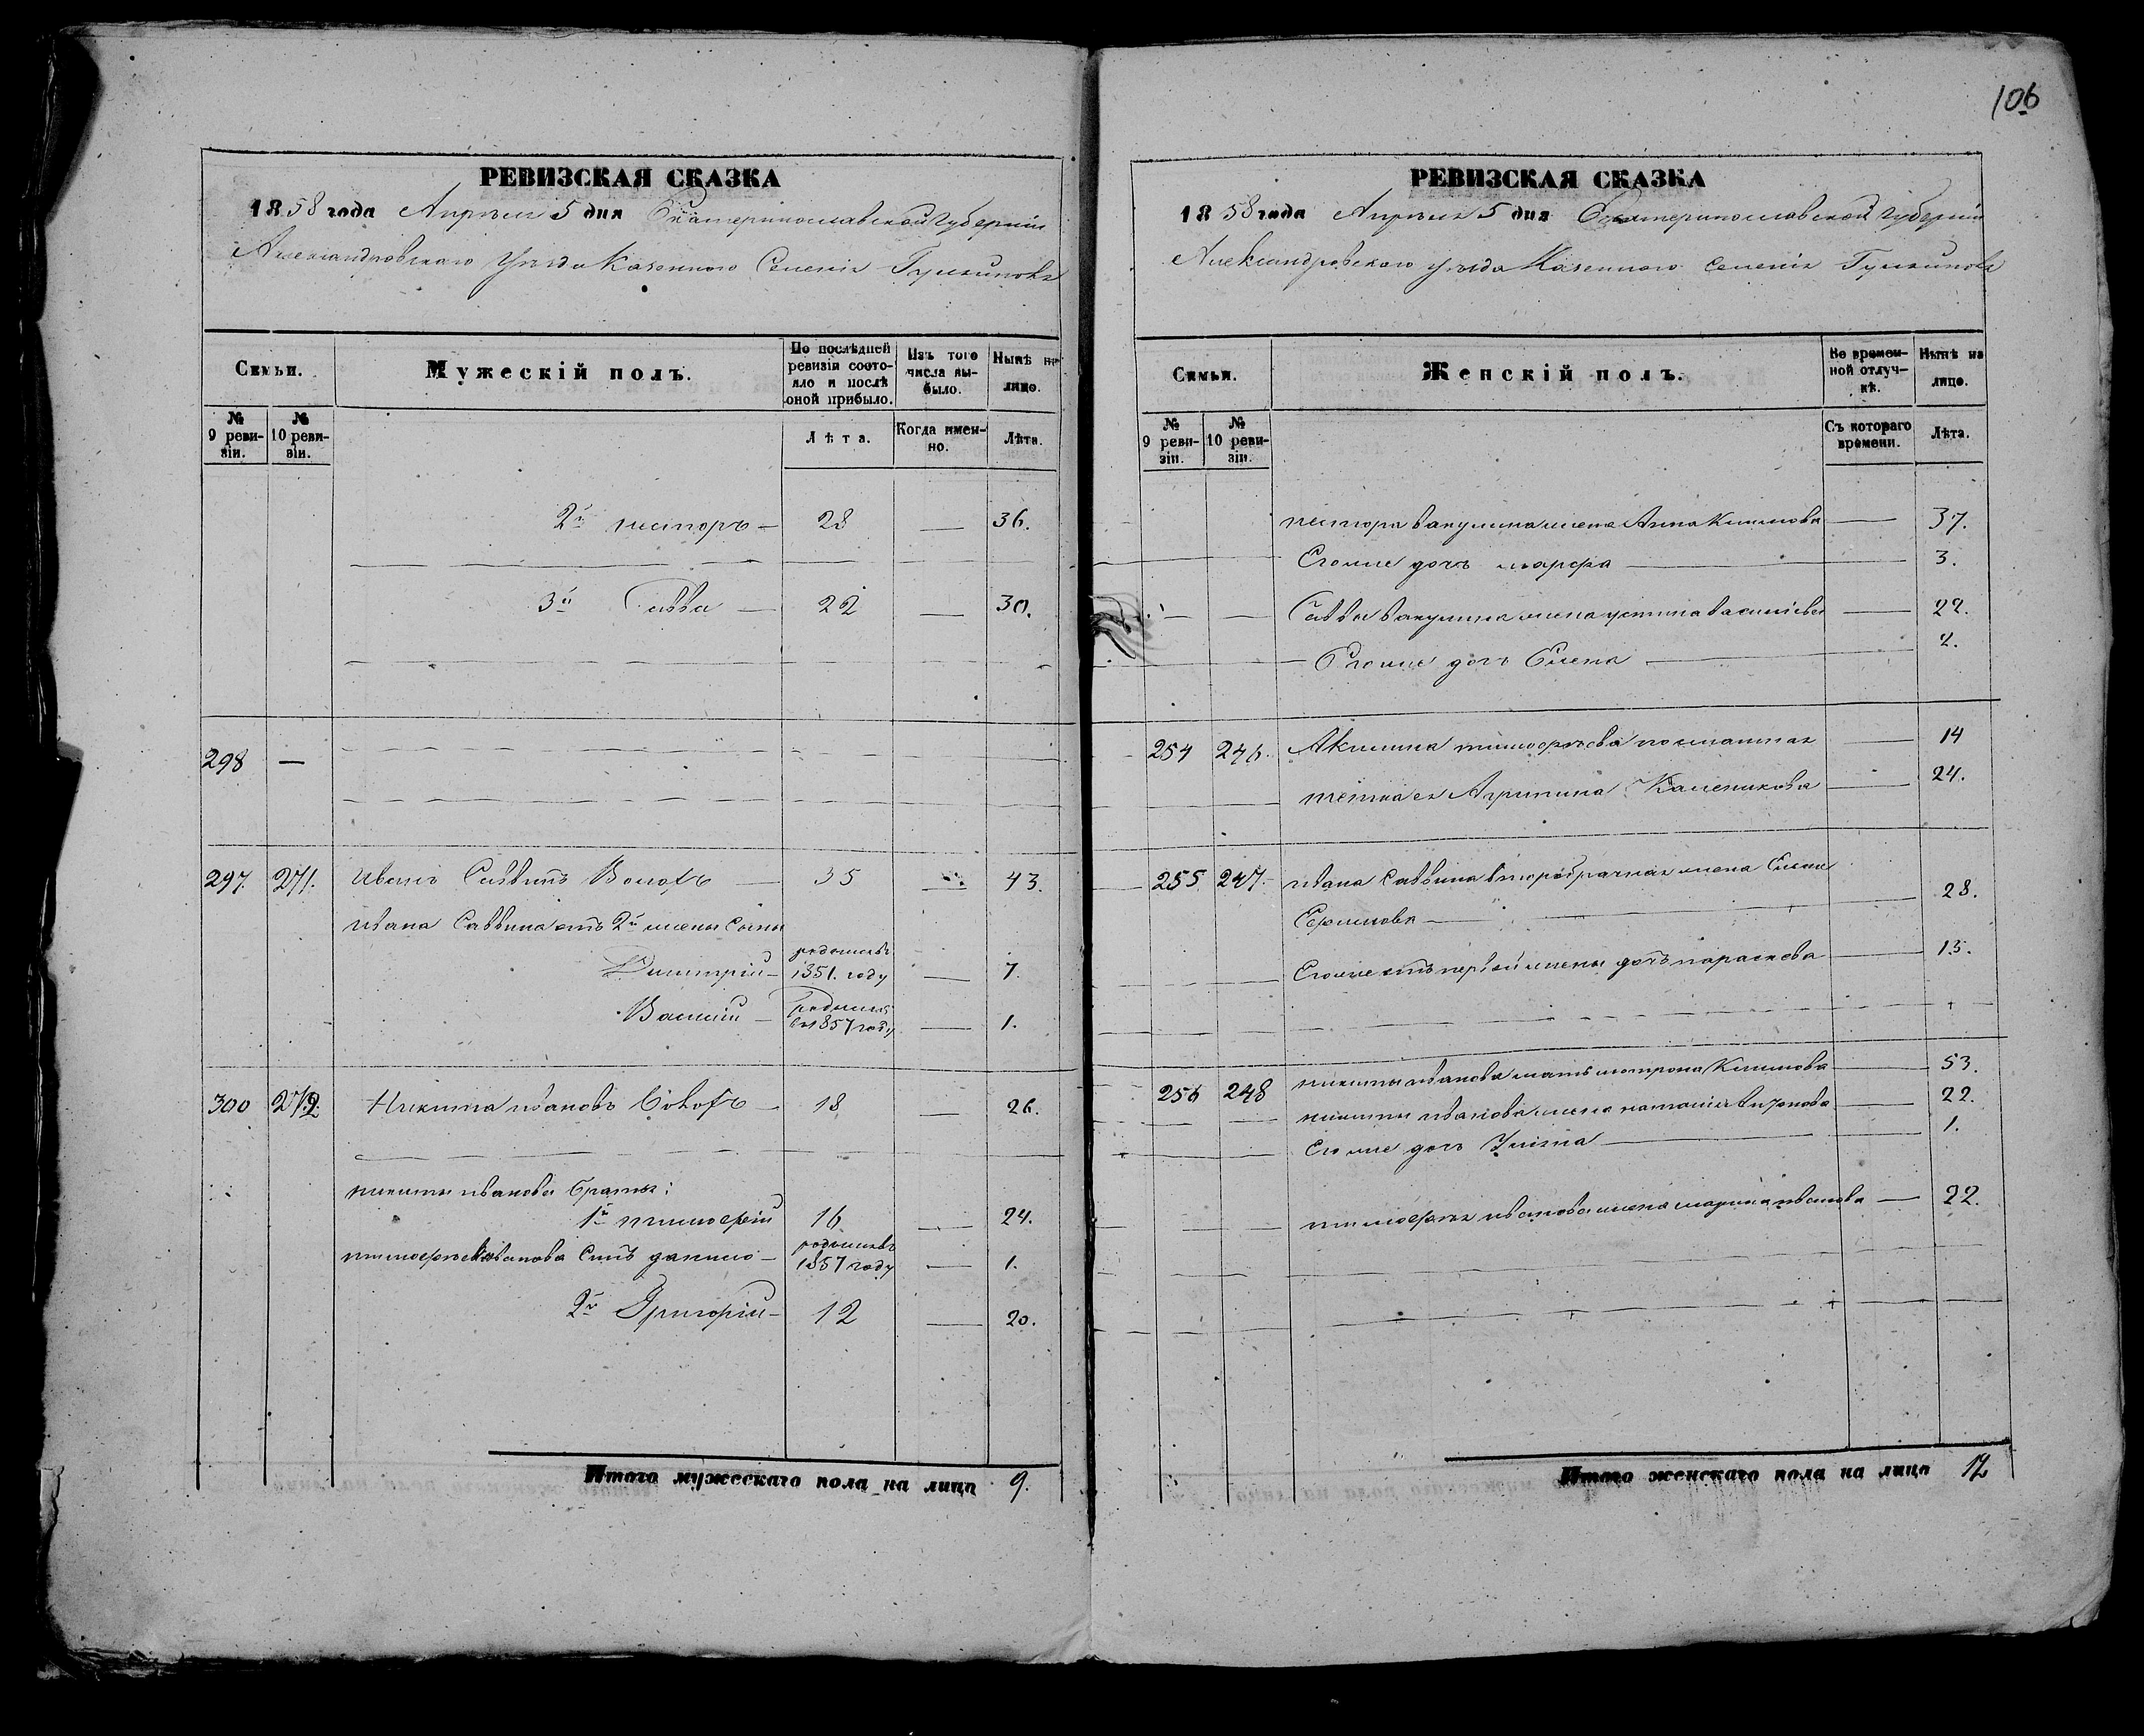 106
РЕВИЗСКАЯ СКАЗКА
1858 года Апреля 5 дня Екатеринославской Губернии
Александровского Уезда Казенного Селения
Семьи.
Мужескій полъ.
По послѣдней ревизіи состояло и послѣ оной прибыло.
Изъ того числа выбыло.
Нынѣ на лицо.
№ 9 ревизіи.
№ 10 ревизіи.
Лѣта.
Когда именно.
Лѣта.
2й несторъ — 28 — 36.
3й Савва — 22 — 30.
298 —
297. 271. Иванъ Саввинъ — 35 — 43.
ивана Саввина отъ 2й жены сыны
Димитрій — родился 1851. году — 7.
Василій — родился въ 1857 году — 1.
300 272. Никита ивановъ — 18 — 26.
никиты иванова братья:
1й тимофей 16 — 24.
тимофея иванова сынъ данило — родился въ 1857 году — 1.
2й Григорій — 12 — 20.
Итого мужескаго пола на лицо 9.
РЕВИЗСКАЯ СКАЗКА
1858 года Апреля 5 дня Екатеринославской губернии
Александровского уезда Казенного Селения
Семьи.
Женскій полъ.
Во временной отлучкѣ.
Нынѣ на лицо.
№ 9 ревизіи.
№ 10 ревизіи.
Съ котораго времени.
Лѣта.
нестора вакулина жена Анна Климова — 37.
Его же дочь марфа — 3.
Саввы вакулина жена устина васильева — 22.
Его же дочь Елена — 2.
254 246. Акилина тимофеева — 14
тетка ея Агрипина — 24.
255 247. ивана Саввина второбрачная жена Елена
Ефимова — 28.
Его же отъ первой жены дочь парасковья — 13.
256 248 никиты иванова мать мотрона Климова — 53.
никиты иванова жена наталия — 22.
Его же дочь — 1.
тимофея иванова жена марина иванова — 22.
Итого женскаго пола на лицо 12